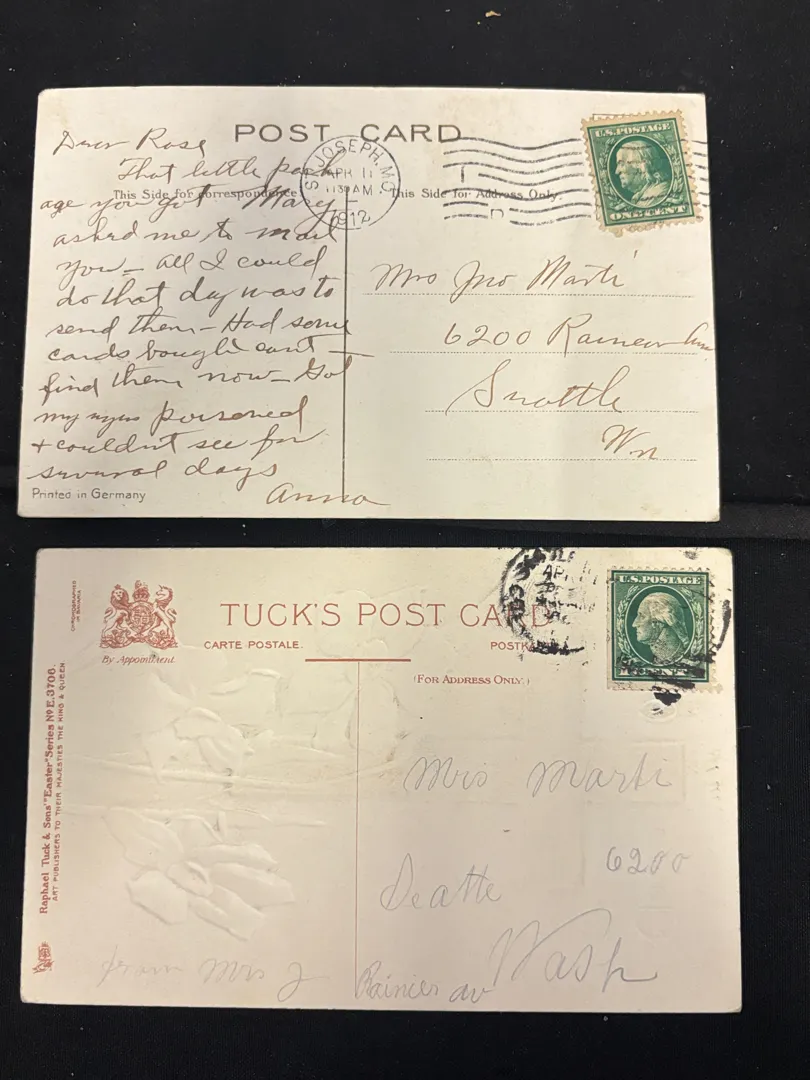 POST CARD
Dear Rose
That little pack
age you got Mary
asked me to mail
you — all I could
do that day was to
send them — Had some
cards bought cant
find them now — Got
my eyes poisoned
+ couldnt see for
several days
Anna
This Side for Correspondence
This Side for Address Only.
ST. JOSEPH, MO.
APR 11
1130 AM
1912
U.S. POSTAGE
ONE CENT
Mrs Jno Marti
6200 Rainier Ave
Seattle
Wn
Printed in Germany
CHROMOGRAPHED
IN BAVARIA
By Appointment
TUCK'S POST CARD
CARTE POSTALE.
(FOR ADDRESS ONLY.)
APR
U.S. POSTAGE
CENT
Raphael Tuck & Sons' "Easter" Series No E. 3706.
ART PUBLISHERS TO THEIR MAJESTIES THE KING & QUEEN
Mrs Marti
6200
Seattle
Wash
Rainier av
from Mrs J